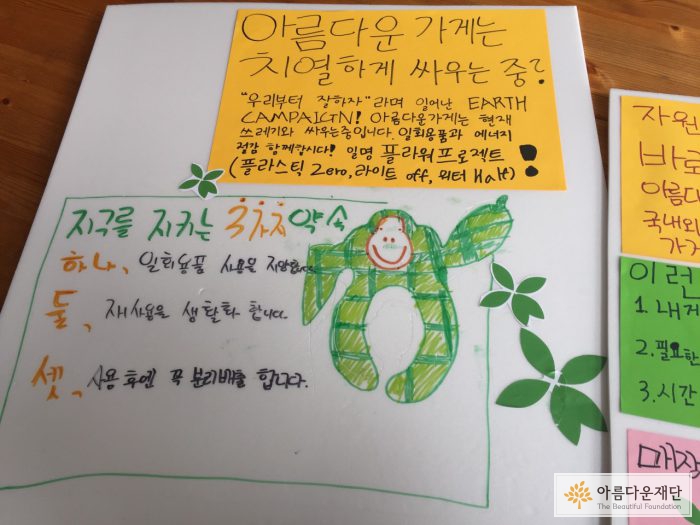 아름다운 가게는
치열하게 싸우는 중?
"우리부터 잘하자"라며 일어난 EARTH
CAMPAIGN! 아름다운가게는 현재
쓰레기와 싸우는중입니다. 일회용품과 에너지
절감 함께합시다! 일명 플라워프로젝트
(플라스틱 Zero, 라이트 off, 워터 Half)!
지구를 지키는 3가지 약속
하나, 일회용품 사용을 지양합니다.
둘, 재사용을 생활화 합니다.
셋, 사용 후엔 꼭 분리배출 합니다.
자원
바로
아름다
국내외
가게
이런
1. 내게
2. 필요한
3. 시간
매장
아름다운재단
The Beautiful Foundation